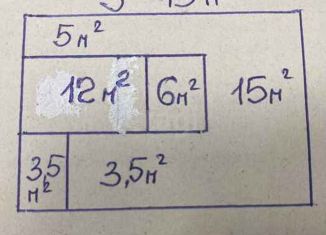 5 м²
12 м² 6 м² 15 м²
3,5 м² 3,5 м²